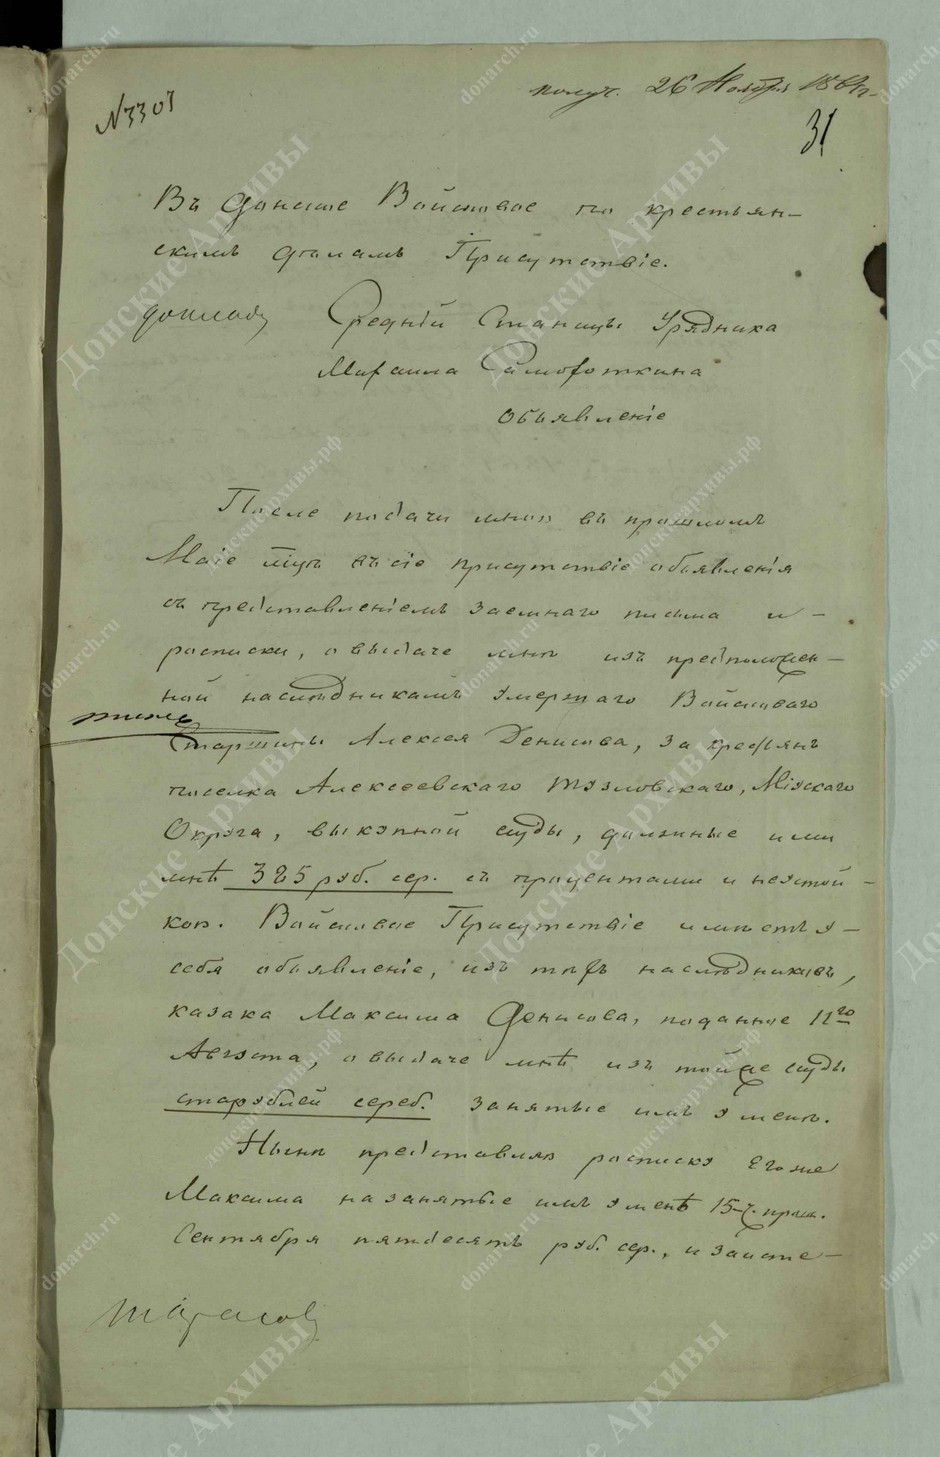 получ. 26 Ноября 1864 г.
№ 3307
31
Въ Донское Войсковое по крестьян-
скимъ дѣламъ Присутствіе.
докладъ
Средней Станицы Урядника
Михаила Самохоткина
Объявленіе
Послѣ подачи мною въ прошломъ
Маіе въ сіе присутствіе объявленія
съ представленіемъ заемнаго письма и
росписки, о выдаче мнѣ изъ предположен-
ной наслѣдникамъ умершаго Войсковаго
Старшины Алексея Денисова, за крестьянъ
поселка Алексеевскаго Тузловскаго, Міускаго
Округа, выкупной ссуды, должные ими
мнѣ 325 руб. сер. съ процентами и неустой-
кою. Войсковое Присутствіе имѣетъ у-
себя объявленіе, изъ тѣхъ наслѣдниковъ,
казака Максима Денисова, поданное 11го
Августа, о выдаче мнѣ изъ тойже ссуды
старублей сереб. занятые имъ у меня.
Нынѣ представляя росписку Егоже
Максима на занятые имъ у менѣ 15-ч. прош.
Сентября пятдесятъ руб. сер., и заимо-
Тарасовъ